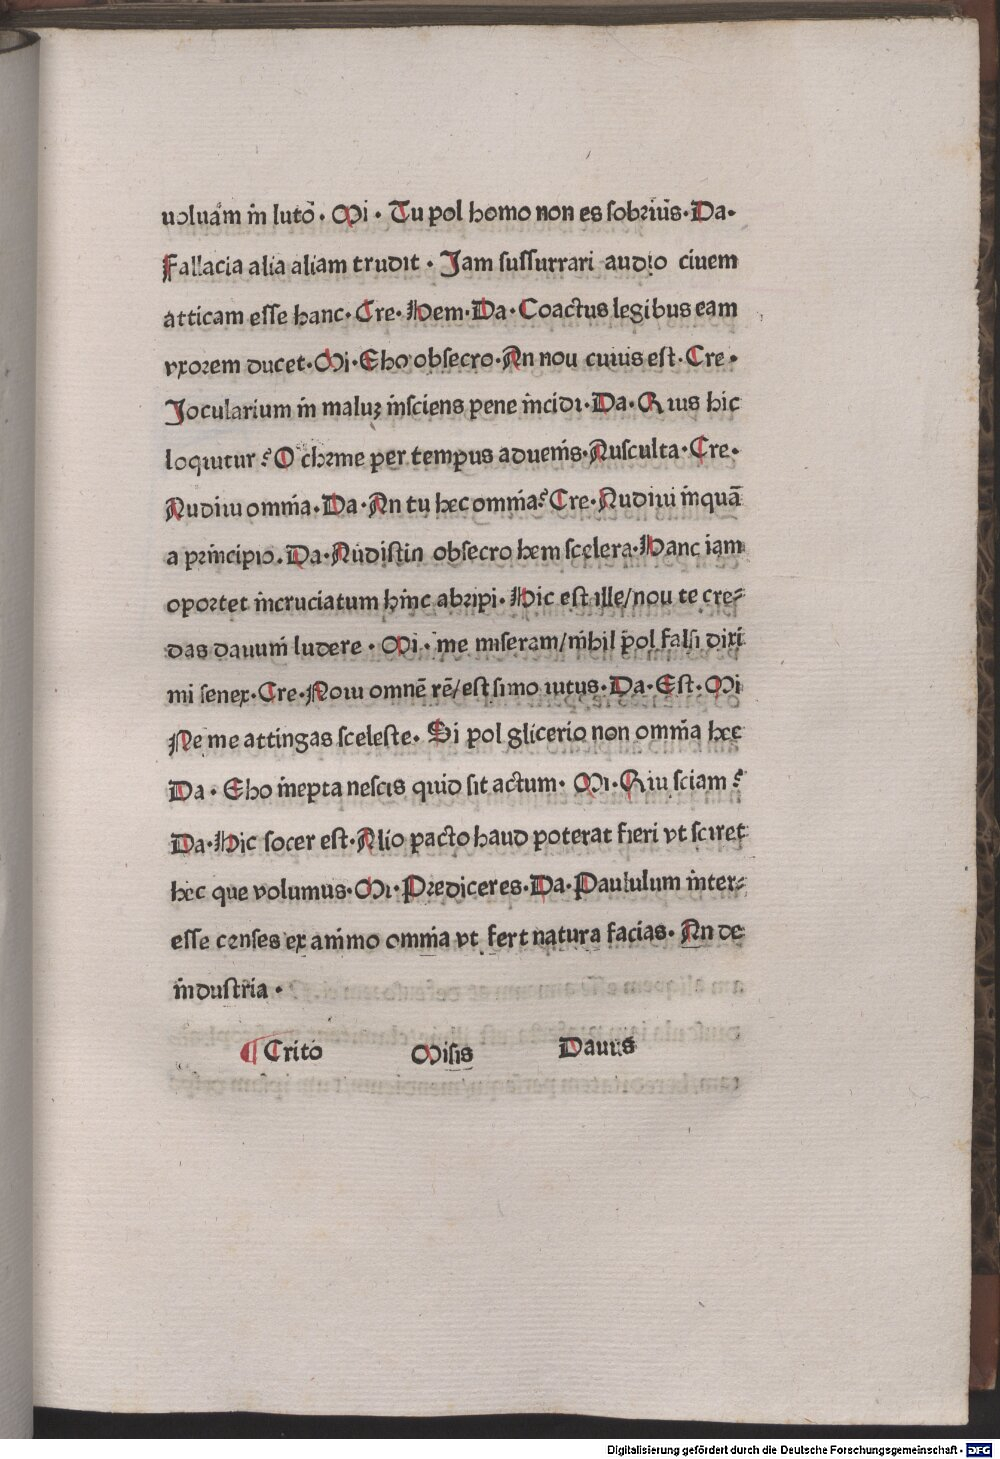 uoluam in lutō · Mi · Tu pol homo non es sobrius · Da ·
Fallacia alia aliam trudit · Jam sussurrari audio ciuem
atticam esse hanc · Cre · Hem · Da · Coactus legibus eam
vxorem ducet · Mi · Eho obsecro · An nou ciuius est · Cre ·
Jocularium in maluʒ insciens pene incidi · Da · Quis hic
loquitur? O chreme per tempus aduenis · Ausculta · Cre ·
Audiui omnia · Da · An tu hec omnia? Cre · Audiui inquā
a principio · Da · Audistin obsecro hem scelera · Hanc iam
oportet incruciatum hinc abripi · Hic est ille / nou te cre=
das dauum ludere · Mi · me miseram / nihil pol falsi dixi
mi senex · Cre · Noui omnē rē / est simo intus · Da · Est · Mi
Ne me attingas sceleste · Si pol glicerio non omnia hec
Da · Eho inepta nescis quid sit actum · Mi · Qui sciam?
Da · Hic socer est · Alio pacto haud poterat fieri vt sciret
hec que volumus · Mi · Prediceres · Da · Paululum inter=
esse censes ex animo omnia vt fert natura facias · An de
industria ·
¶ Crito Misis Dauus
Digitalisierung gefördert durch die Deutsche Forschungsgemeinschaft - DFG